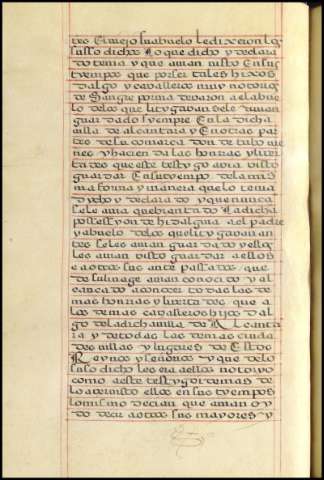 tes El viejo su abuelo le dixeron los
susso dichos Lo que dicho y declara
do tenia y que avian visto En sus
tiempos que por ser tales hixos
dalgo y cavalleros muy notorios
de Sangre
de los que litigavan se le avian
guardado siempre En la dicha
villa de alcantara y En otras par
tes de la comarca don de tubo vie
nes y haciendas las honrras y liber
tades que este testigo avia visto
guardar En su tiempo de la mis
ma forma y manera que lo tenia
dicho y declarado y que nunca
se les avia quebrantado La dicha
possession de hidalguia a el padre
y abuelo de los que litigavan an
tes se les avian guardado y ellos
les avian visto guardar a ellos
e a otros sus ante passados que
de su linage avian conocido y al
cancado a conocer todas las de
mas honrras y libertades que a
los demas cavalleros hijos dal
go de la dicha villa de Alcanta
ra y de todas las demas ciuda
des villas y lugares de Estos
Reynos y señorios y que de lo
suso dicho les era a ellos notorio
como a este testigo i demas de
lo aver visto ellos en sus tiempos
lo mismo decian que avian oy
do decir a otros sus mayores y